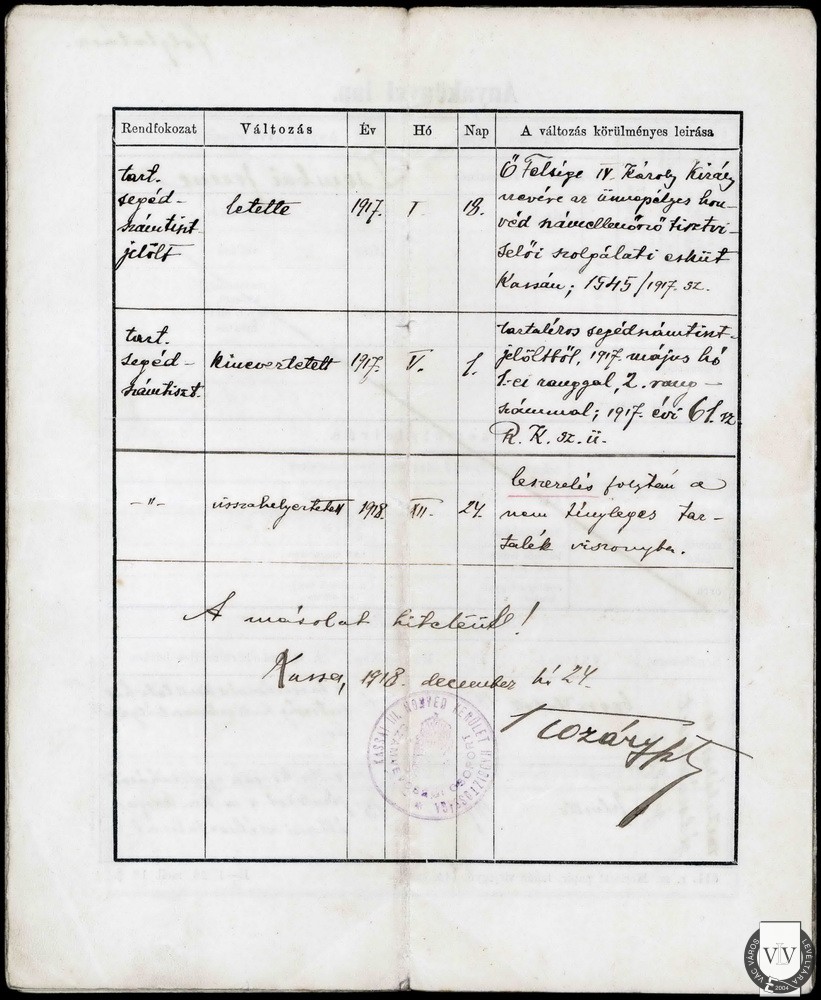 Rendfokozat Változás Év Hó Nap A változás körülményes leirása
tart.
segéd-
számtiszt
jelölt
letette
1917.
I.
18.
Ő Felsége IV. Károly Király
nevére az ünnepélyes hon-
véd számellenőrző tisztvi-
selői szolgálati esküt
Kassán; 1545/1917. sz.
tart.
segéd-
számtiszt.
kineveztetett
1917.
V.
1.
tartalékos segédszámtiszt-
jelöltből, 1917. május hó
1-ei ranggal, 2. rang-
számmal; 1917. évi 61. sz
R. K. sz. ü.
-"-
visszahelyeztetett
1918.
XII.
24.
leszerelés folytán a
nem tényleges tar-
talék viszonyba.
A másolat hiteléül!
Kassa, 1918. december hó 24.
KASSAI III. HONVÉD KERÜLET
VÁC VÁROS LEVÉLTÁRA
VLV
2004